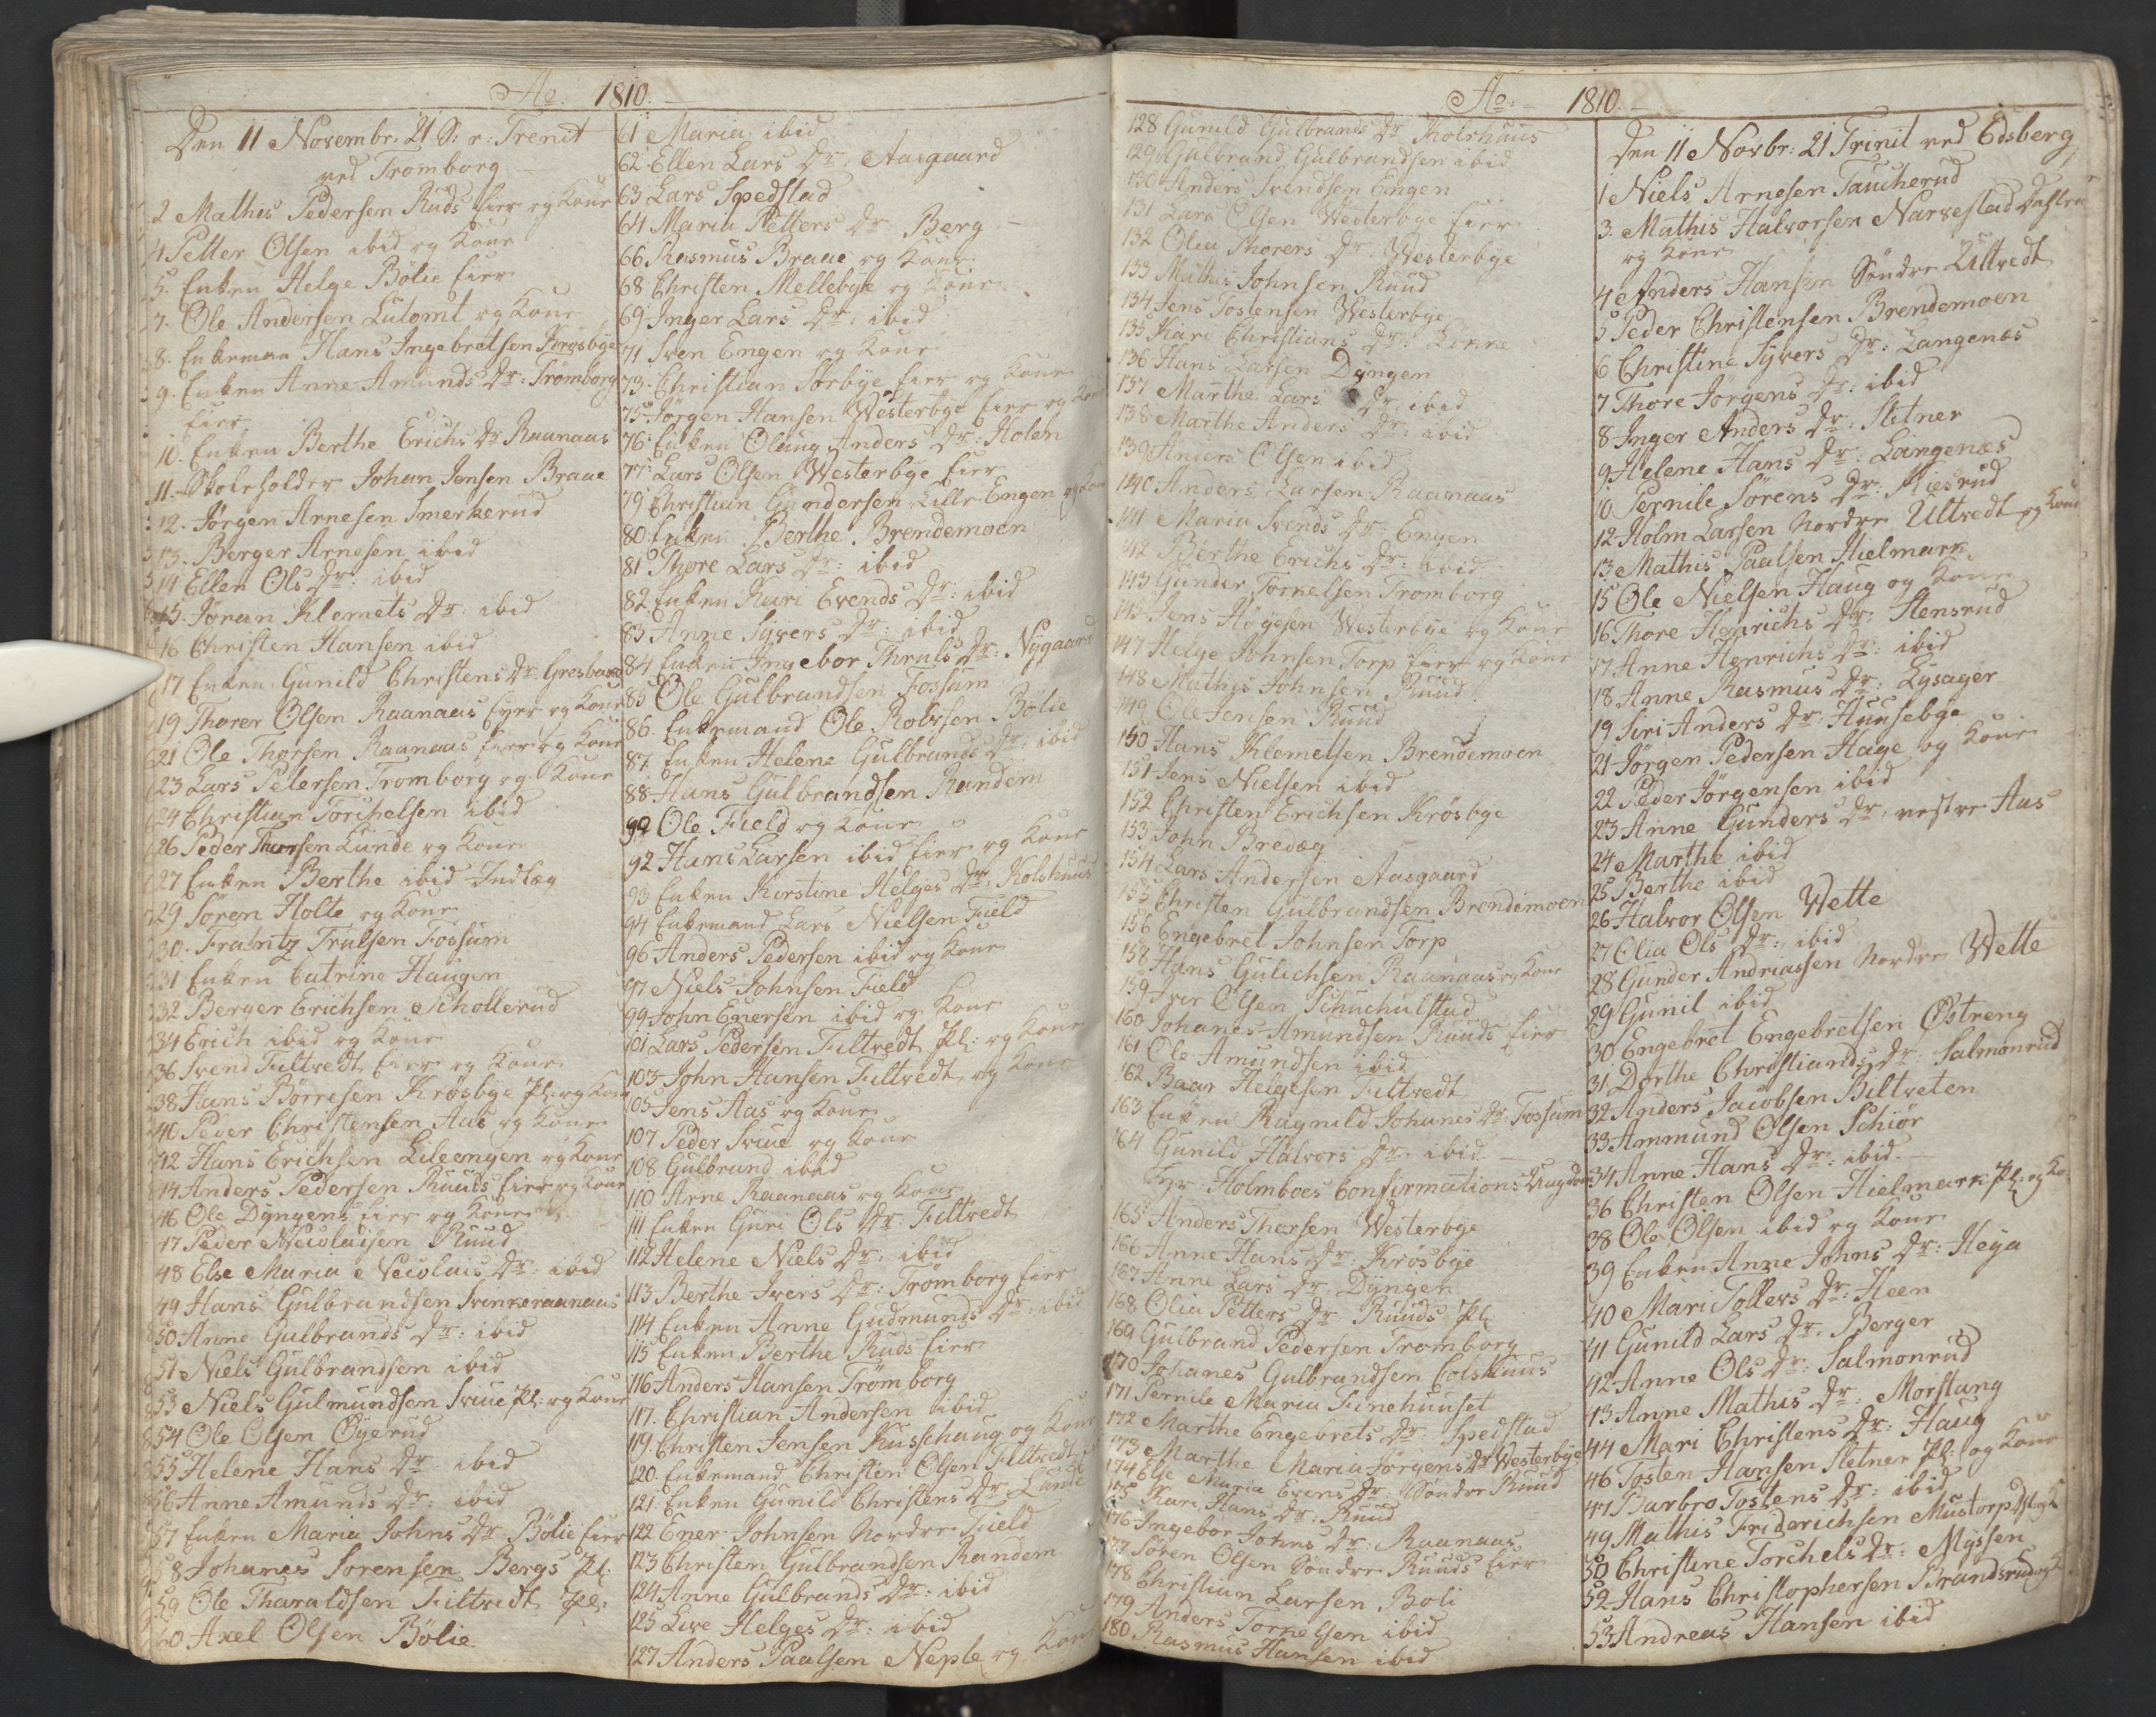 Ao: 1810.
Den 11 Novembr. 21 S: p: Trenit
ved Tromborg
2 Mathis Pedersen Ruds Eier og Kone
4 Petter Olsen ibid og Kone
5. Enken Helge Bölie Eier
7. Ole Andersen Lutomt og Kone
8. Enkeman Hans Ingebretsen Krøsbye
9. Enken Anne Amunds Dr: Tromborg
Eier
10. Enken Berthe Erichs Dr Raanaas
11. Skoleholder Johan Jensen Braae
12. Jørgen Arnesen Smerkerud
13. Berger Arnesen ibid
14 Ellen Ols Dr: ibid
15. Jøran Klemets Dr: ibid
16 Christen Hansen ibid
17 Enken Gunild Christens Dr
19 Thorer Olsen Raanaas Eyer og Kone
21 Ole Thorsen Raanaas Eier og Kone
23 Lars Petersen Tromborg og Kone
24 Christian Torchelsen ibid
26 Peder Thorsen Lunde og Kone
27 Enken Berthe ibid Indlæg
29 Søren Holte og Kone
30. Frantz Trulsen Fossum
31 Enken Catrine Haugen
32 Berger Erichsen Schollerud
34 Erich ibid og Kone
36 Svend Tiltvedt Eier og Kone
38 Hans Börresen Krøsbye Pl: og Kone
40 Peder Christensen Aas og Kone
42 Hans Erichsen Lileengen og Kone
44 Anders Pedersen Ruuds Eier og Kone
46 Ole Dyngens Eier og Kone
47 Peder Nicolaisen Ruud
48 Else Maria Nicolais Dr: ibid
49 Hans Gulbrandsen Svenneraanaas
50 Anne Gulbrands Dr: ibid
51 Niels Gulbrandsen ibid
53 Niels Gulmundsen Sviue Pl: og Kone
54 Ole Olsen Øyerud
55 Helene Hans Dr ibid
56 Anne Amunds Dr: ibid
57 Enken Maria Johns Dr Bölie Eier
58 Johanes Sorensen Bergs Pl:
59 Ole Tharaldsen Tiltvedt Pl:
60 Axel Olsen Bölie
61 Maria ibid
62 Ellen Lars Dr. Aasgaard
63 Lars Spedstad
64 Maria Petters Dr: Berg
66 Rasmus Braae og Kone
68 Christen Mellebye og Kone
69 Inger Lars Dr: ibid
71 Sven Engen og Kone
73. Christian Sørbye Eier og Kone
75 Jørgen Hansen Westerbye Eier og Kone
76 Enken Olaug Anders Dr: Holen
77. Lars Olsen Westerbye Eier
79 Christian Gundersen Lille Engen og Kone
80. Enken Berthe Brendemoen
81 Thore Lars Dr: ibid
82 Enken Kari Evends Dr: ibid
83 Anne Syvers Dr: ibid
84 Enken Ingebor Thruls Dr: Nygaard
85 Ole Gulbrandsen Fossum
86. Enkemand Ole Rolvsen Bölie
87. Enken Helene Gulbrands Dr: ibid
88 Hans Gulbrandsen Randem
90 Ole Field og Kone
92 Hans Larsen ibid Eier og Kone
93 Enken Kirstine Helges Dr: Kolshuus
94 Enkemand Lars Nielsen Field
96 Anders Pedersen ibid og Kone
97 Niels Johnsen Field
99 John Enersen ibid og Kone
101 Lars Pedersen Tiltvedt Pl: og Kone
103 John Hansen Tiltvedt og Kone
105 Jens Aas og Kone
107 Peder Sviue og Kone
108 Gulbrand ibid
110 Arne Raanaas og Kone
111 Enken Guri Ols Dr: Tiltvedt
112 Helene Niels Dr: ibid
113 Berthe Ivers Dr: Trömborg Eier
114 Enken Anne Gudmunds Dr: ibid
115 Enken Berthe Ruds Eier
116 Anders Hansen Tròmborg
117. Christian Andersen ibid
119. Christen Jensen Kusschaug og Kone
120. Enkemand Christen Olsen Tiltvedt
121. Enken Gunild Christens Dr Lunde
122 Ener Johnsen Nordre Field
123 Christen Gulbrandsen Randem
124 Anne Gulbrands Dr: ibid
125 Live Helges Dr: ibid
127 Anders Paalsen Neple og Kone
Ao: 1810.
128 Gunild Gulbrands Dr Kolshuus
129 Gulbrand Gulbrandsen ibid
130 Anders Svendsen Engen
131 Lars Olsen Westerbye Eier
132 Olia Thorers Dr: Westerbye
133 Mathis Johnsen Ruud
134 Jens Tostensen Westerbye
135 Kari Christians Dr:
136 Hans Larsen Dyngen
137 Marthe Lars Dr: ibid
138 Marthe Anders Dr: ibid
139 Anders Olsen ibid
140 Anders Larsen Raanaas
141 Maria Svends Dr: Engen
142 Berthe Erichs Dr: ibid
143 Gunder Tornelsen Tromborg
145 Jens Høyesen Westerbye og Kone
147 Helge Johnsen Torp Eier og Kone
148 Mathis Johnsen Ruud
149 Ole Jensen Ruud
150 Hans Klemetsen Brendemoen
151 Jens Nielsen ibid
152 Christen Erichsen Krösbye
153 John Bredæg
154 Lars Andersen Aasgaard
155 Christen Gulbrandsen Brendemoen
156 Engebret Johnsen Torp
158 Hans Gulichsen Raanaas og Kone
159 Iver Olsen Schuchulstad
160 Johanes Amundsen Ruuds Eier
161 Ole Amundsen ibid
162 Baar Helgesen Tiltvedt
163 Enken Ragnild Johanes Dr Fossum
164 Gunild Halvors Dr: ibid.
Hr: Holmboes Confirmations Ungdom
165 Anders Thorsen Westerbye
166 Anne Hans Dr: Krøsbye
167 Anne Lars Dr Dyngen
168 Olia Petters Dr Ruuds Pl:
169 Gulbrand Pedersen Tromborg
170 Johanes Gulbrandsen Colshuus
171 Pernile Maria Finehuuset
172 Marthe Engebrets Dr: Spedstad
173 Marthe Maria Jørgens Dr Westerbye
174 Else Maria Evens Dr: Söndre Ruud
175 Kari Hans Dr: Ruud
176 Ingebor Johns Dr: Raanaas
177 Søren Olsen Søndre Ruuds Eier
178 Christian Larsen Boli
179 Anders Tornelsen ibid
180. Rasmus Hansen ibid
Den 11 Novbr: 21 Trinit ved Edsberg
1 Niels Arnesen Taucherud
3. Mathis Halvorsen Narvestad
og Kone
4 Anders Hansen Söndre Ultvedt
5 Peder Christensen Brendemoen
6 Christine Syvers Dr: Langenæs
7 Thore Jörgens Dr: ibid
8 Inger Anders Dr: Sletner
9. Helene Hans Dr: Langenæs
10 Pernile Sørens Dr: Kiesrud
12 Holm Larsen Nordre Ultvedt og Kone
13 Mathis Paalsen Hielmark
15 Ole Nielsen Haug og Kone
16 Thore Henrichs Dr: Stensrud
17 Anne Henrichs Dr: ibid
18 Anne Rasmus Dr: Lysager
19 Siri Anders Dr: Huusebye
21 Jørgen Pedersen Hage og Kone
22 Peder Jörgensen ibid
23 Anne Gunders Dr. vestre Aas
24 Marthe ibid
25 Berthe ibid
26 Halvor Olsen Wette
27 Olia Ols Dr: ibid
28 Gunder Andriassen Nordre Wette
29 Gunil ibid
30 Engebret Engebretsen Østreng
31. Dorthe Christiands Dr: Salmonrud
32 Anders Jacobsen Biltveten
33 Ammund Olsen Schiør
34 Anne Hans Dr: ibid.
36 Christen Olsen Hielmark Pl: og Ko
38 Ole Olsen ibid og Kone
39 Enken Anne Johns Dr: Heya
40 Mari Tollevs Dr: Heen
41 Gunild Lars Dr. Berger
42 Anne Ols Dr: Salmonrud
43 Anne Mathis Dr: Morstang
44 Mari Christens Dr: Haug
46 Tosten Hansen Sletner Pl: og Kone
47 Barbro Tostens Dr: ibid
49 Mathis Friderichsen Mustorp
50 Christine Torchels Dr: Myssen
52 Hans Christophersen Brandsrud og K
53 Andreas Hansen ibid